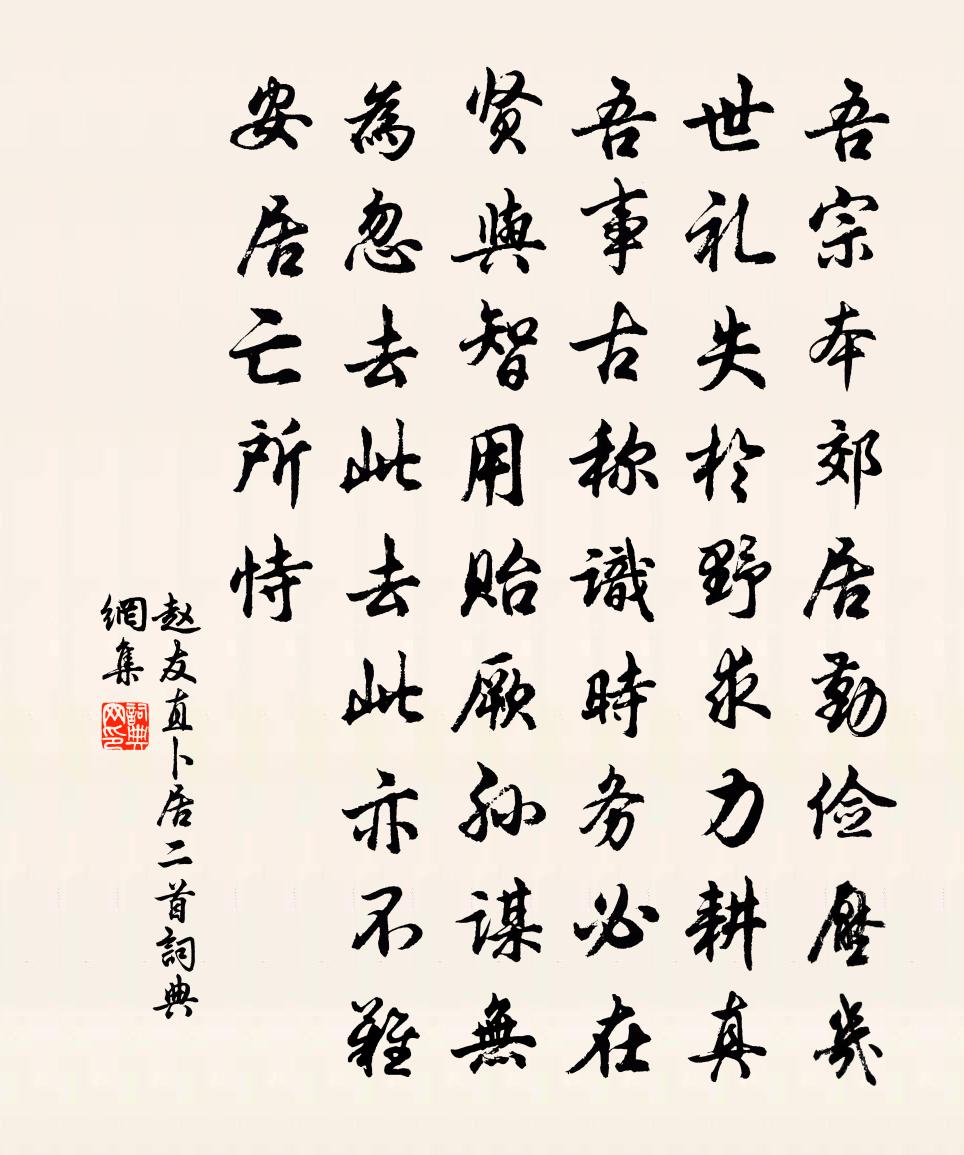 吾宗本郊居勤俭歷幾
世礼失於野求力耕真
吾事古称識時务必在
贤與智用贻厥孙謀無
為忽去此去此亦不難
安居亡所恃
赵友直卜居二首詞典
網集
詞典网印